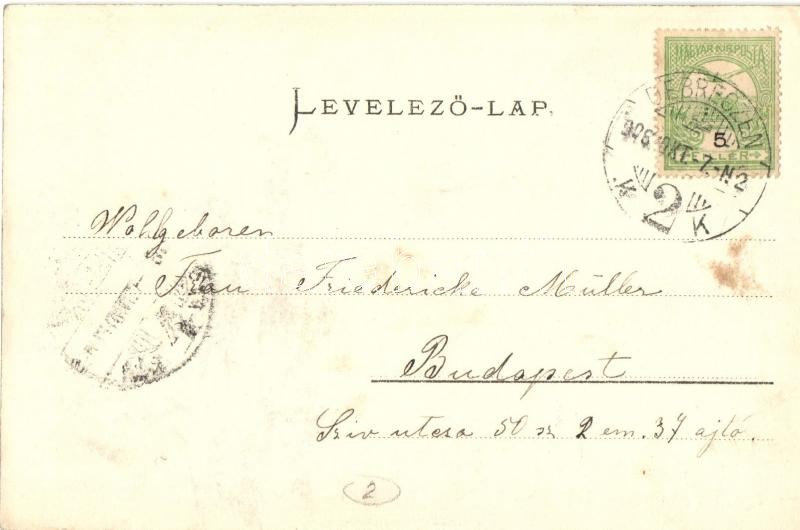 MAGYAR KIR. POSTA
5
FILLER
DEBRECZEN
906 OKT. -7.-N2
2
K
LEVELEZŐ-LAP.
Wohlgeboren
Frau Friedericke Müller
Budapest
Sziv utcsa 50 sz 2 em. 37 ajtó.
2